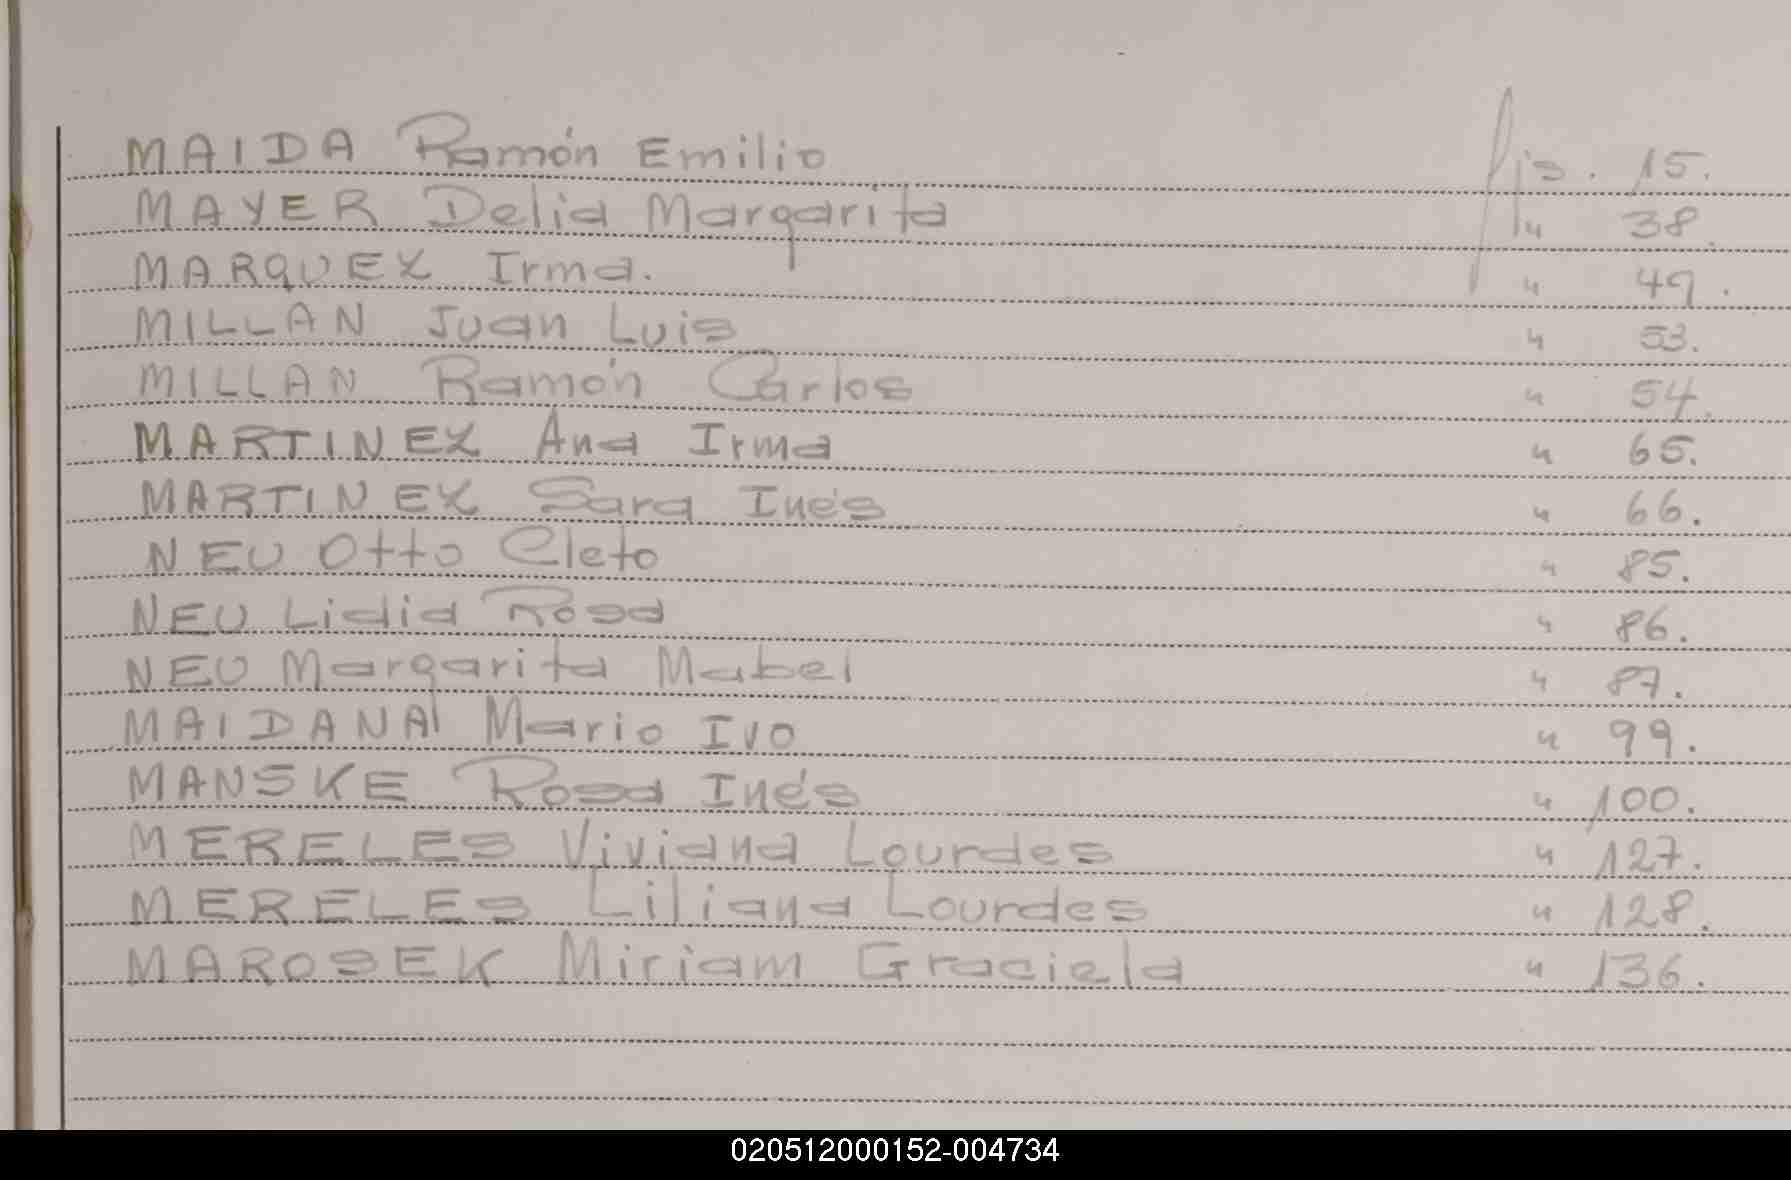 MAIDA Ramón Emilio fjs. 15.
MAYER Delia Margarita " 38.
MARQUEZ Irma. " 49.
MILLAN Juan Luis " 53.
MILLAN Ramón Carlos " 54.
MARTINEZ Ana Irma " 65.
MARTINEZ Sara Inés " 66.
NEU Otto Cleto " 85.
NEU Lidia Rosa " 86.
NEU Margarita Mabel " 87.
MAIDANA Mario Ivo " 99.
MANSKE Rosa Inés " 100.
MERELES Viviana Lourdes " 127.
MERELES Liliana Lourdes " 128.
MAROSEK Miriam Graciela " 136.
020512000152-004734